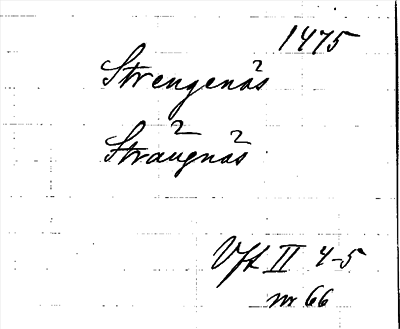 1475
Strengenäs
Strängnäs
Vft II 4-5
nr 66